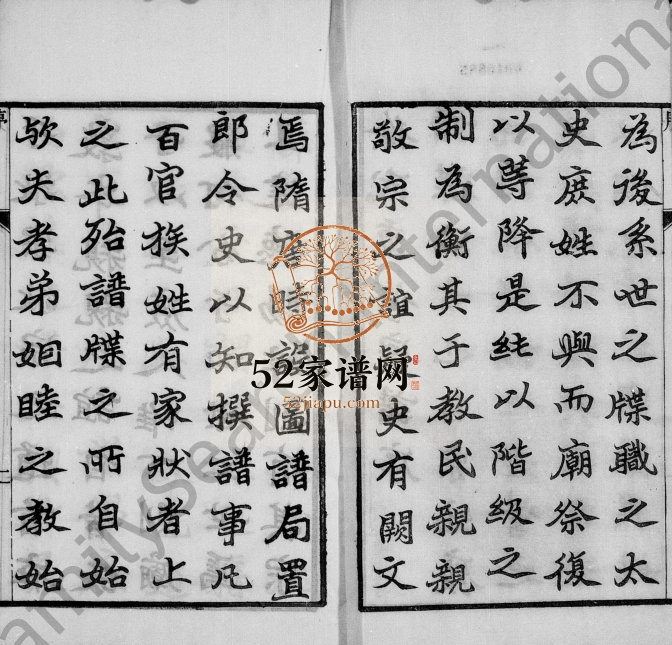 為後系世之牒職之太
史庶姓不與而廟祭復
以等降是純以階級之
制為衡其于教民親親
敬宗之誼疑史有闕文
焉隋唐時設圖譜局置
郎令史以知撰譜事凡
百官族姓有家狀者上
之此殆譜牒之所自始
欤夫孝弟姻睦之教始
序
二
52家谱网
52jiapu.com
FamilySearch International